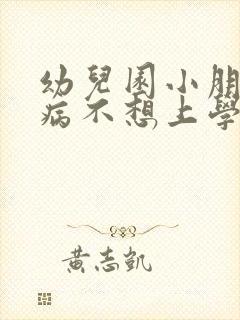 幼兒園小朋
病不想上學
黃志凱